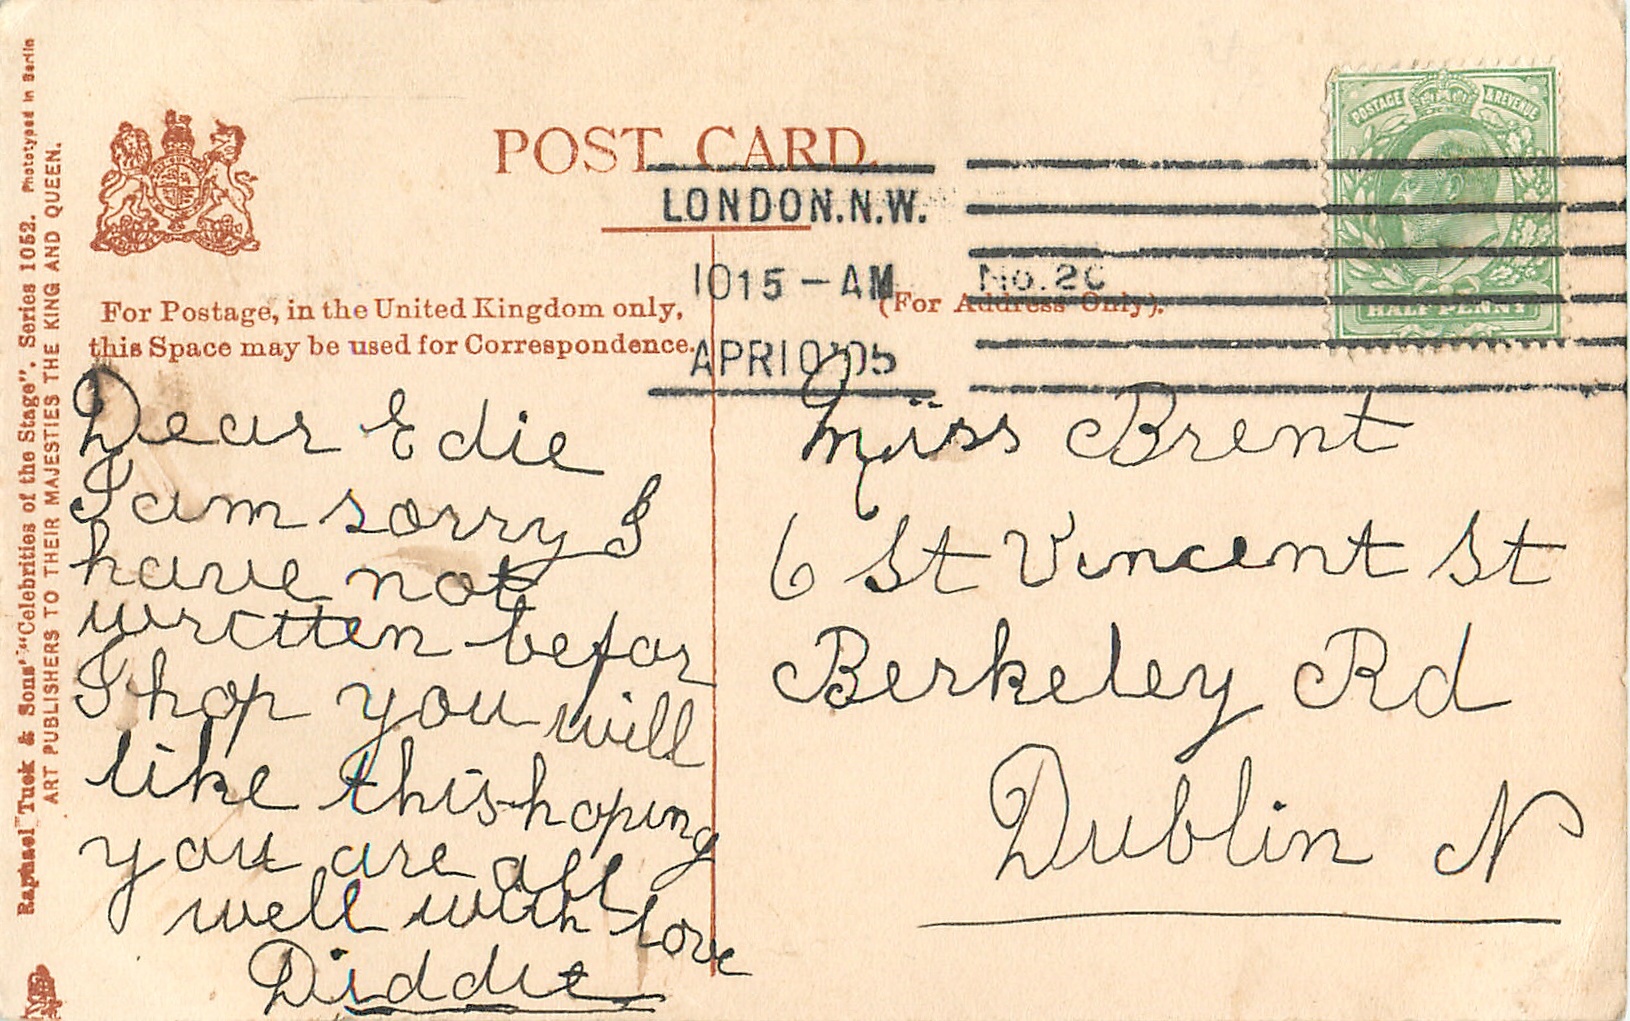 POST CARD.
LONDON.N.W.
1015-AM
No.26
APR10'05
POSTAGE & REVENUE
HALF PENNY
For Postage, in the United Kingdom only,
this Space may be used for Correspondence.
(For Address Only).
Dear Edie
I am sorry I
have not
written befor
I hop you will
like this hoping
you are all
well with love
Diddie
Miss Brent
6 St Vincent St
Berkeley Rd
Dublin N
Raphael Tuck & Sons' "Celebrities of the Stage". Series 1052. Phototyped in Berlin
ART PUBLISHERS TO THEIR MAJESTIES THE KING AND QUEEN.